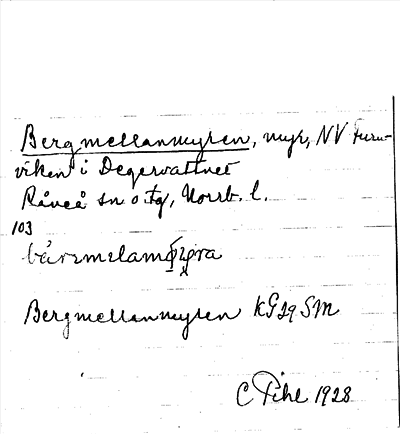 Bergmellanmyren, myr, NV Furu-
viken i Degervattnet
Råneå sn o tg, Norrb. l.
103
Bergmellanmyren KG 29 SM
C Pihl 1928